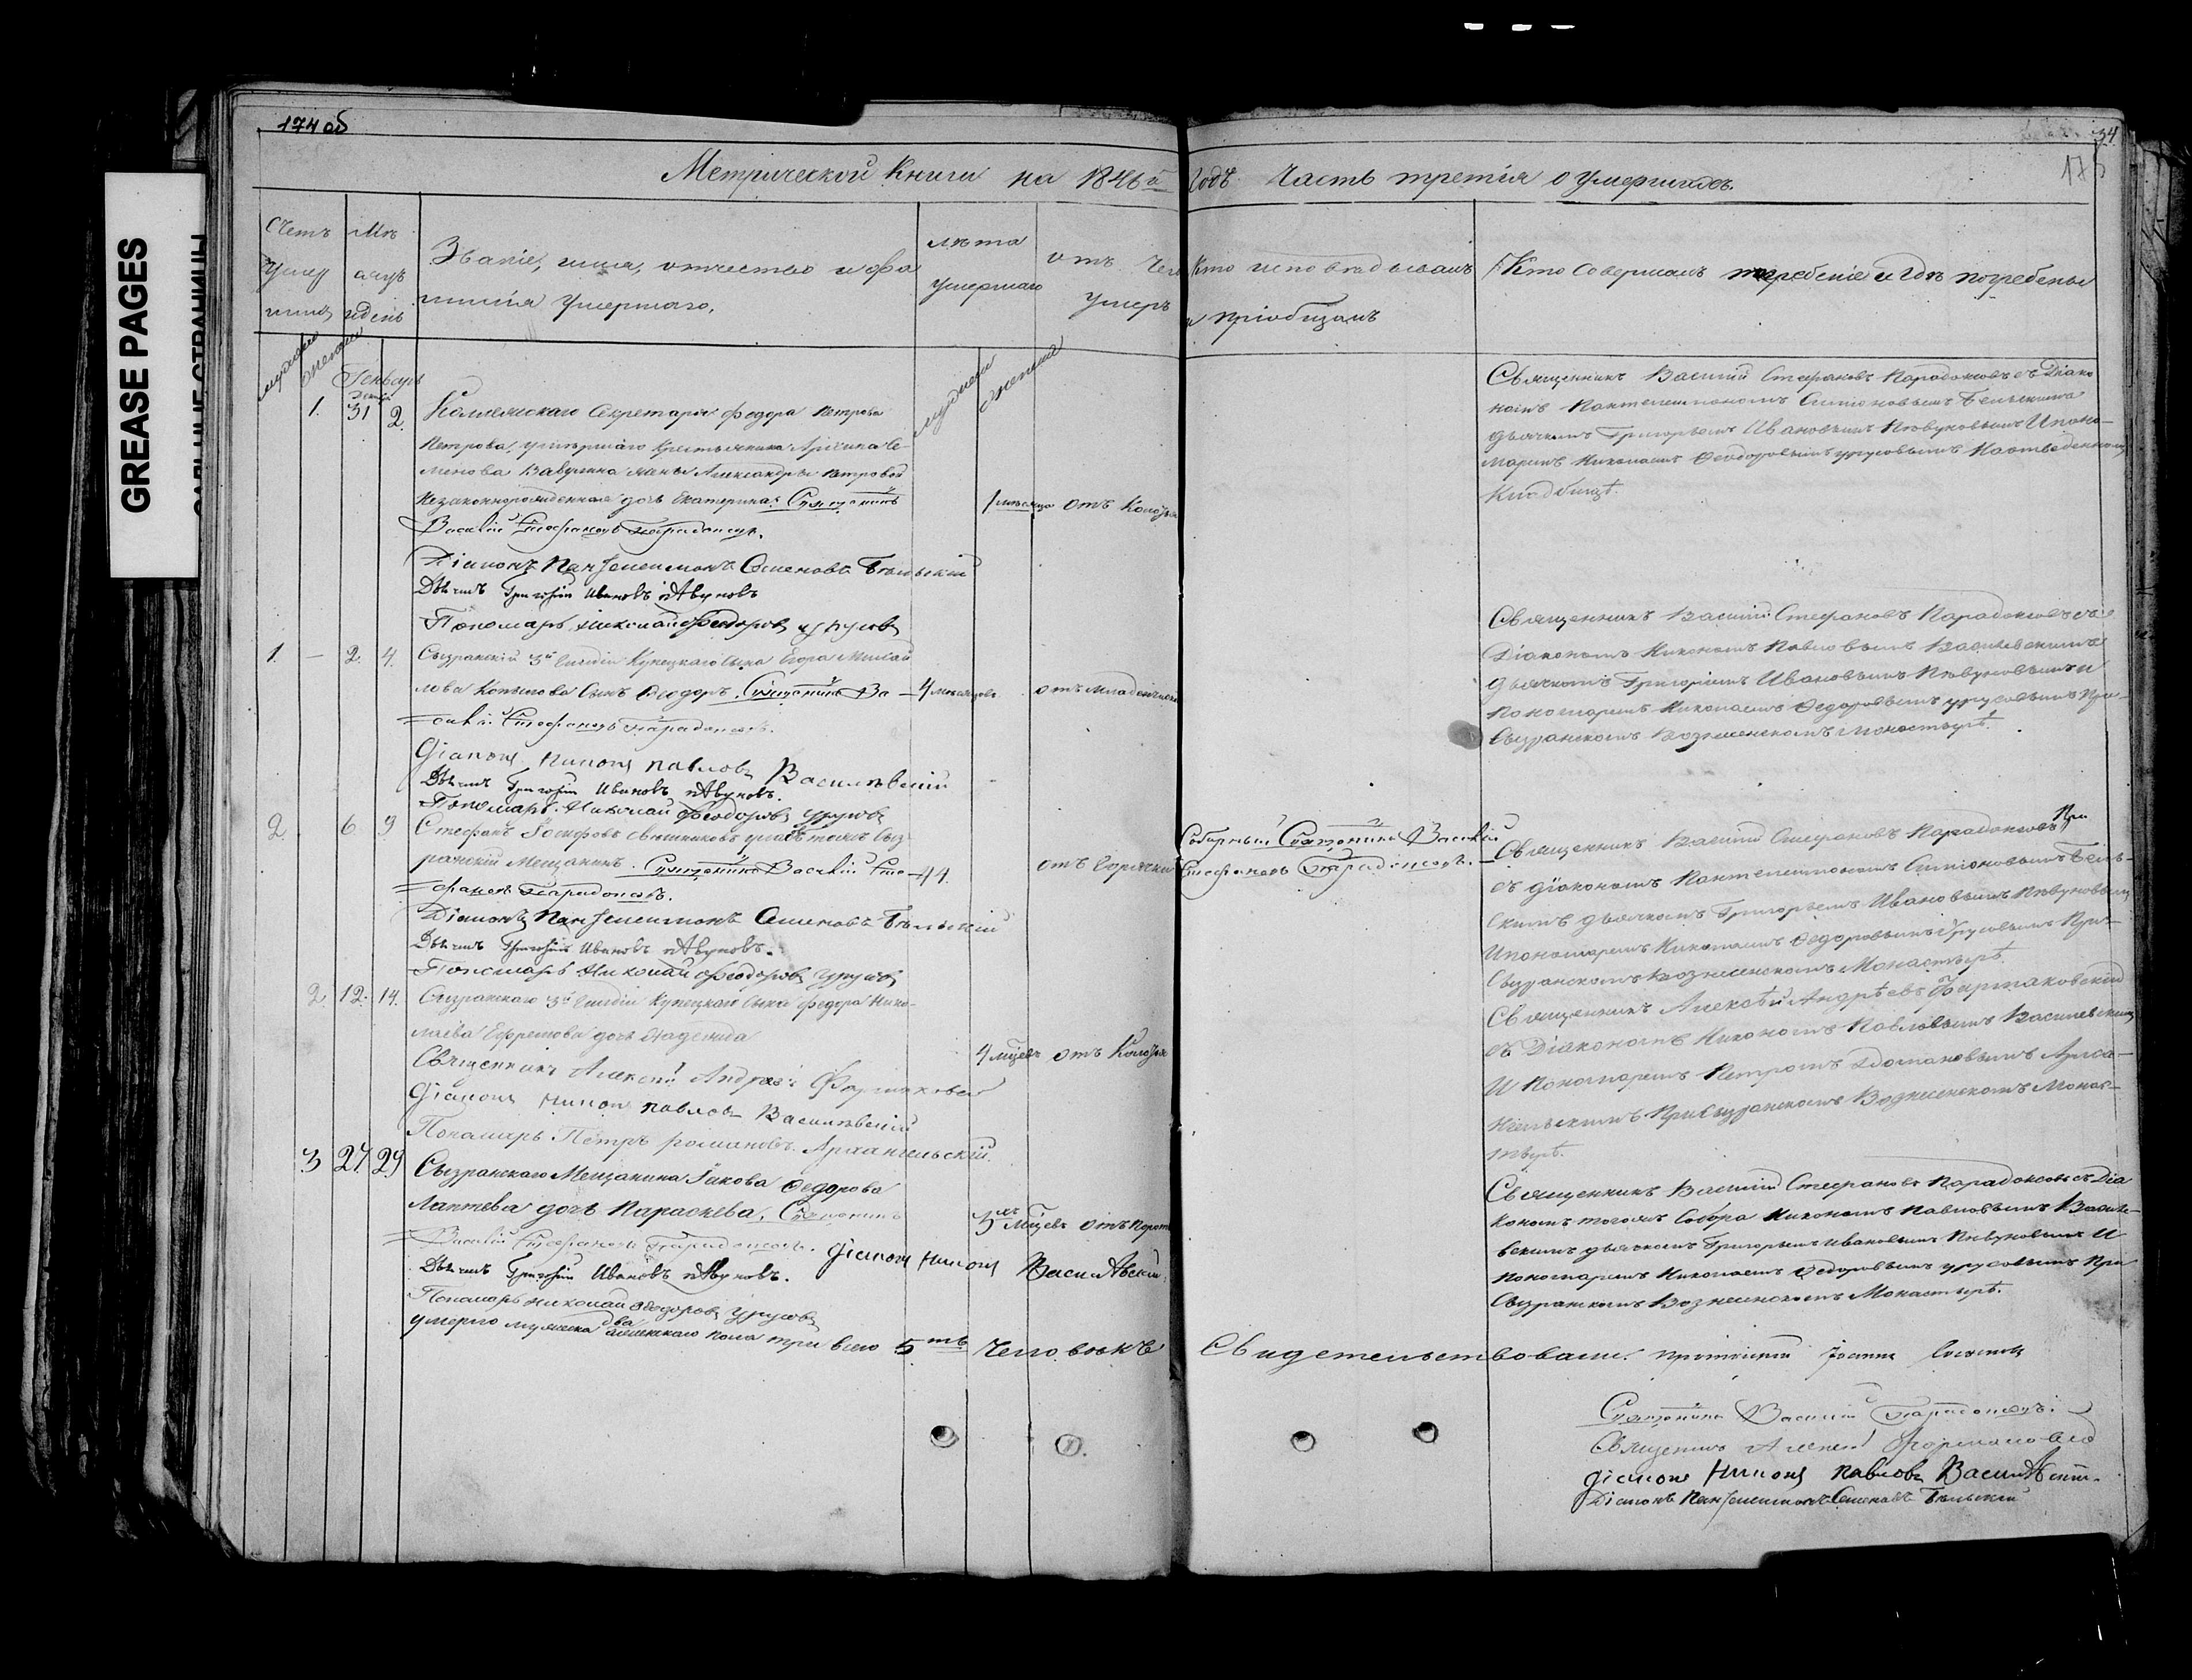 GREASE PAGES
174 об
34
175
Метрической Книги на 1846й Годъ Часть третія о умершихъ.
Счетъ умер шихъ
Мѣ сяцъ и день
Званіе, имя, отчество и фа
милія умершаго.
лѣта
умершаго
отъ чего
умеръ
Кто исповѣдывалъ
и пріобщалъ
Кто совершалъ погребеніе и гдѣ погребены
мужеска
женска
мужеска
женска
Генварь
Декаб
1. 31 2. Коллежскаго Секретаря Федора Петрова
Петрова, умершаго крестьянина
жены Александры Петровой
незаконнорожденная дочь Екатерина. Священникъ
1 мѣсяца отъ Коло
Василій Стефановъ Парадоксовъ.
Діаконъ Пантелеимонъ Семеновъ Бѣльскій
Дьячекъ Григорій Ивановъ Пѣвуновъ
Пономарь Николай Феодоровъ Урусовъ
Священникъ Василій Стефановъ Парадоксовъ съ Діако
номъ Пантелеимономъ Симіоновымъ Бельскимъ
дьячкомъ Григорьемъ Ивановымъ Пѣвуновымъ И поно-
маремъ Николаемъ Феодоровымъ Урусовымъ На отведенномъ
Кладбищѣ.
1. — 2. 4. Сызранскій 3й Гилдіи Купецкаго сына Егора Михай
лова Копылова Сынъ Феодоръ. Священникъ Ва
4 мѣсяцевъ отъ младенческой
силій Стефановъ Парадоксовъ.
Діаконъ Никонъ Павловъ Василевскій
Дьячекъ Григорій Ивановъ Пѣвуновъ.
Пономарь Николай Феодоровъ Урусовъ
Священникъ Василій Стефановъ Парадоксовъ съ
Діакономъ Никономъ Павловымъ Василевскимъ
дьячкомъ Григоріемъ Ивановымъ Пѣвуновымъ и
пономаремъ Николаемъ Федоровымъ Урусовымъ При
Сызранскомъ Вознесенскомъ Монастырѣ.
2. 6 9 Стефанъ Іосифовъ Сыз
ранскій Мещанинъ. Священникъ Василій Сте
44. отъ Горячки
фановъ Парадоксовъ.
Діаконъ Пантелеимонъ Семеновъ Бѣльскій
Дьячекъ Григорій Ивановъ Пѣвуновъ.
Пономарь Николай Феодоровъ Урусовъ
Соборный Священникъ Василій
Стефановъ Парадоксовъ.
Священникъ Василій Стефановъ Парадоксовъ
съ діакономъ Пантелеимономъ Симіоновымъ Бель-
скимъ дьячкомъ Григорьемъ Ивановымъ Пѣвуновымъ
И пономаремъ Николаемъ Федоровымъ Урусовымъ При
Сызранскомъ Вознесенскомъ Монастырѣ.
2. 12. 14. Сызранскаго 3й Гилдіи Купецкаго Сына Федора Нико-
лаева Ефремова дочь Надежда
4 мцевъ отъ Коло
Священникъ Алексѣй Андреевъ
Діаконъ Никонъ Павловъ Василевскій
Пономарь Петръ Романовъ Архангельскій.
Священникъ Алексѣй Андрѣевъ
съ Діакономъ Никономъ Павловымъ Василевскимъ
И Пономаремъ Петромъ Романовымъ Арха-
нгельскимъ При Сызранскомъ Вознесенскомъ Монас-
тырѣ.
3 27 29 Сызранскаго Мещанина Іакова Федорова
Лаптева дочь Параскева. Священникъ
5 мцевъ отъ
Василій Стефановъ Парадоксовъ. Діаконъ Никонъ Василевскій
Дьячекъ Григорій Ивановъ Пѣвуновъ.
Пономарь Николай Феодоровъ Урусовъ
Священникъ Василій Стефановъ Парадоксовъ съ Діа
кономъ тогожъ Собора Никономъ Павловымъ Василе-
вскимъ дьячкомъ Григорьемъ Ивановымъ Пѣвуновымъ И
пономаремъ Николаемъ Федоровымъ Урусовымъ При
Сызранскомъ Вознесенскомъ Монастырѣ.
умерло мужеска два женскаго пола три всего 5ть Человѣкъ
Свидетельствовали: протоіерей Іоаннъ
Священникъ Василій Парадоксовъ
Священникъ Алексѣй
Діаконъ Никонъ Павловъ Василевскій.
Діаконъ Пантелеимонъ Семеновъ Бѣльскій